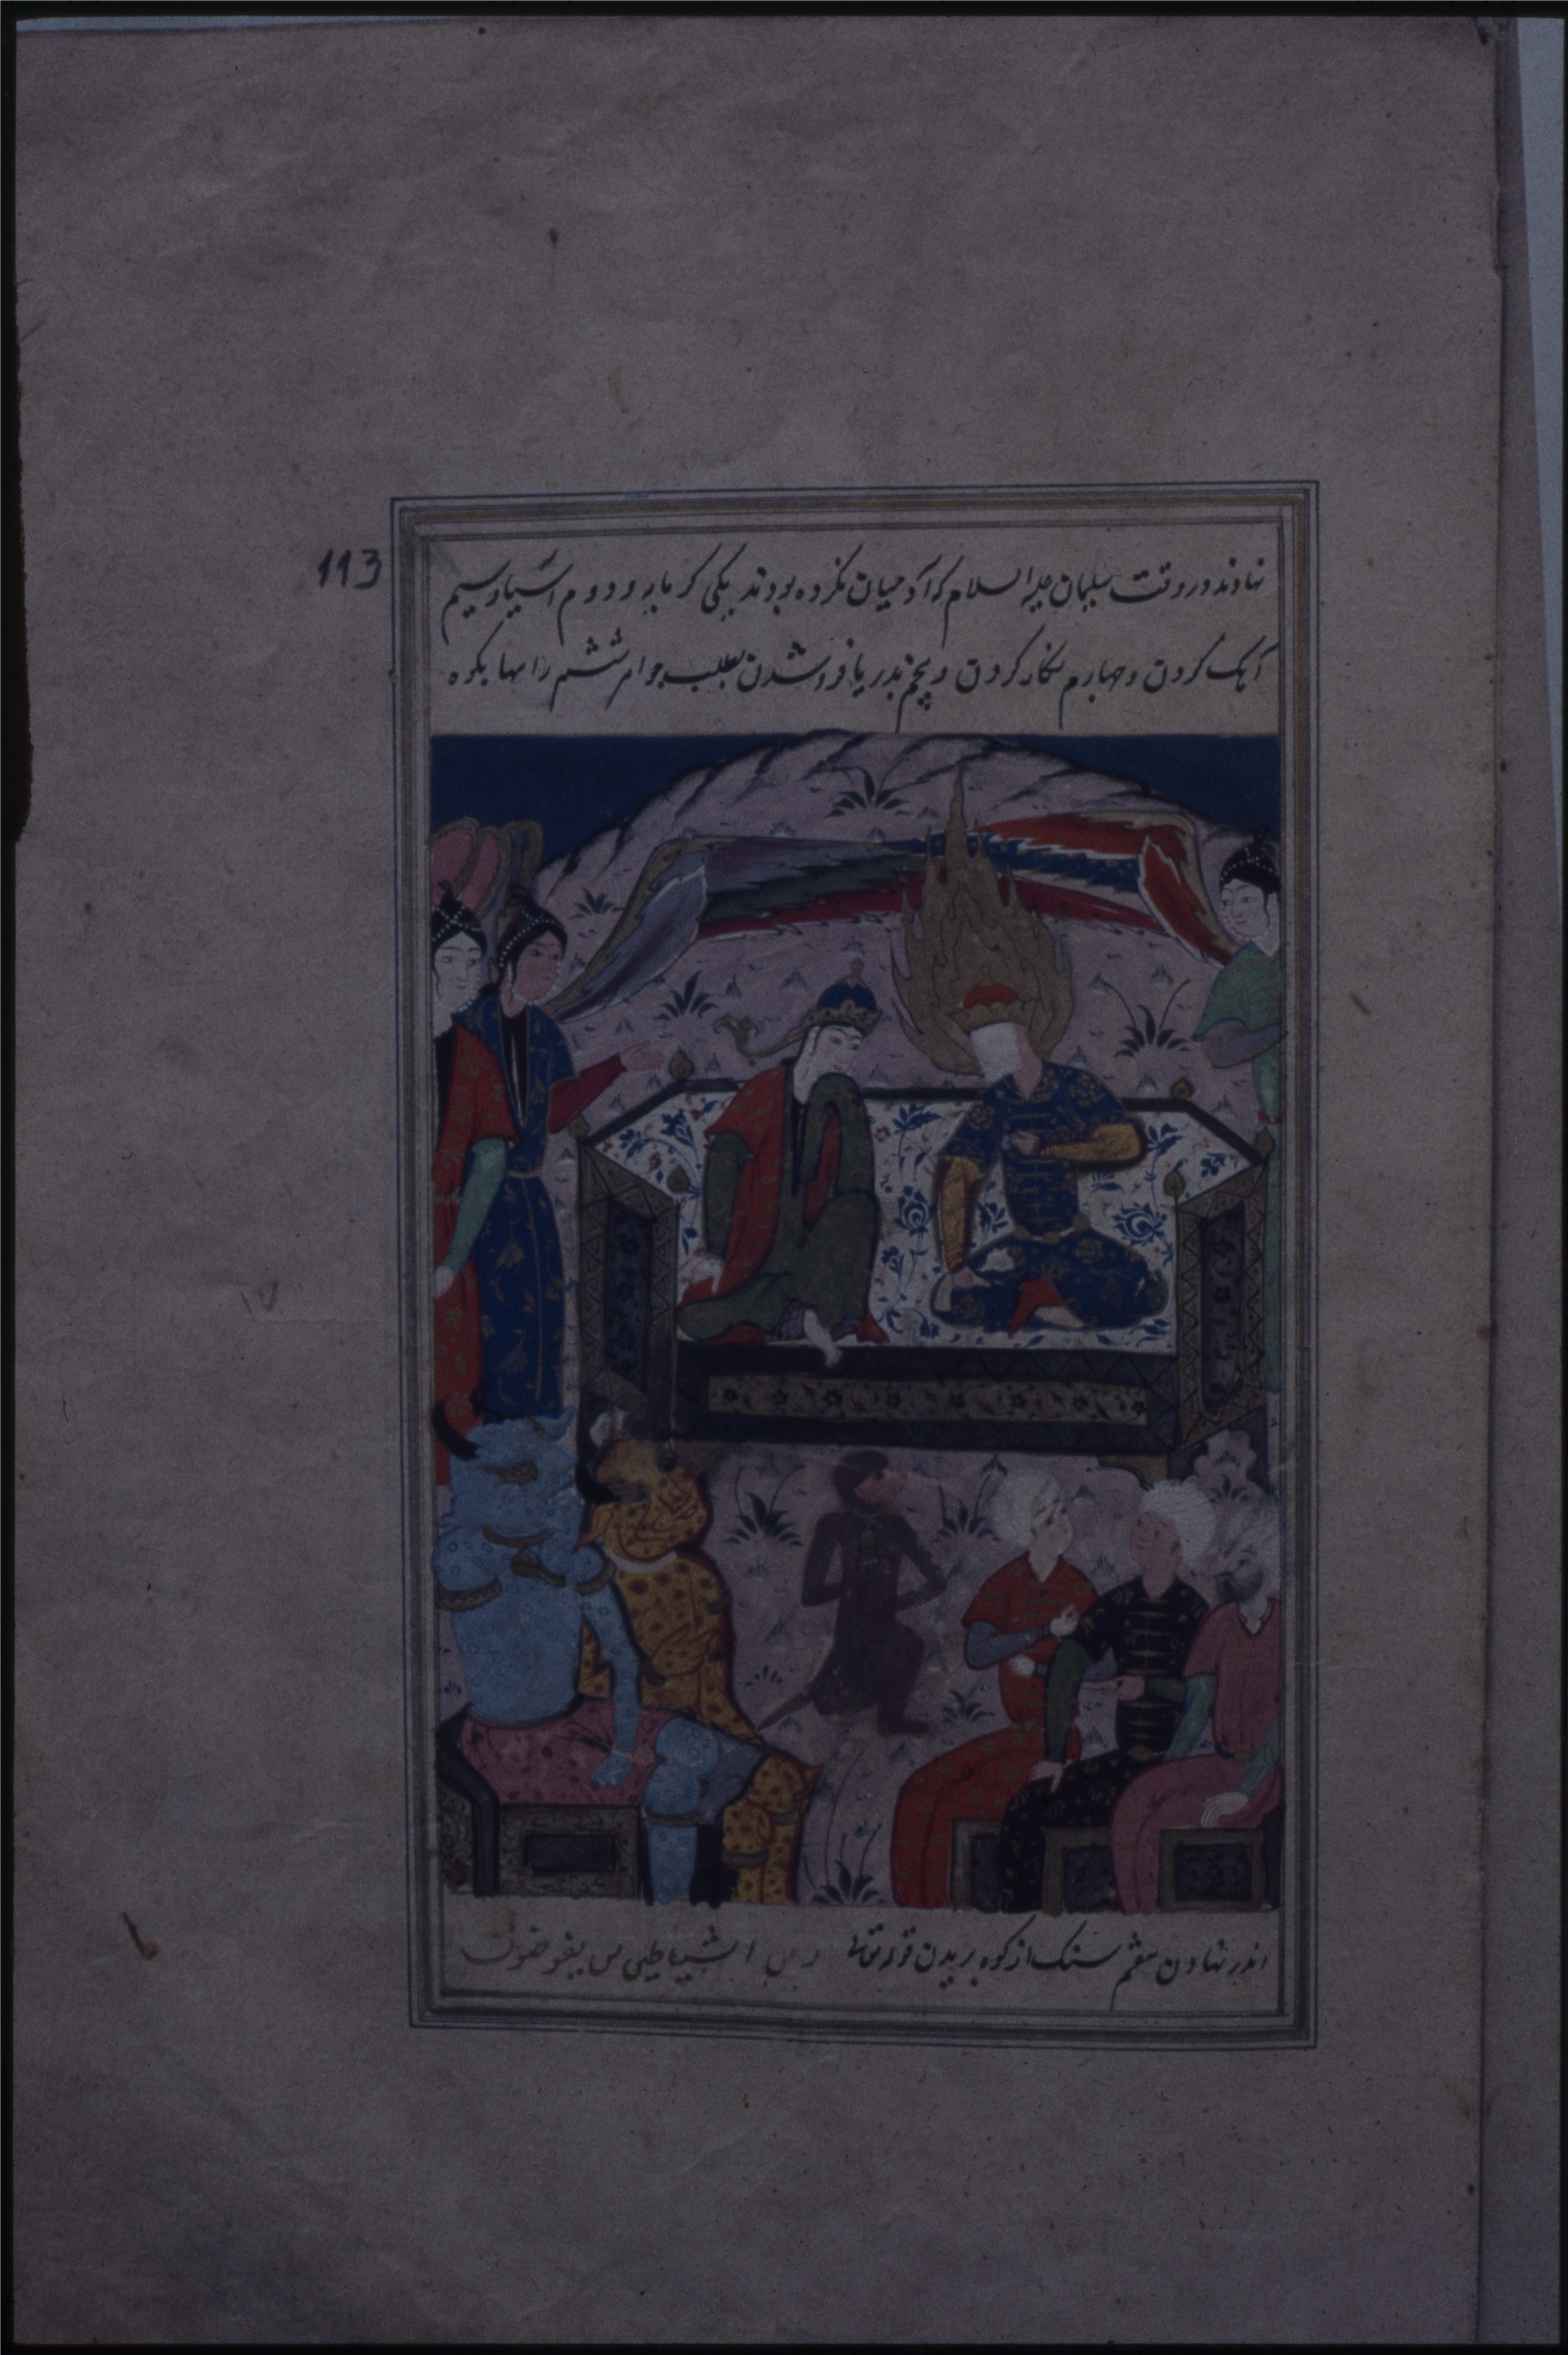 113
نهادند در وقت سلیمان علیه السلام که آدمیان نکرده بودند یکی کرمابه و دوم آسیا و سیم
آهک کردن و چهارم نکار کردن و پنجم بدریا فرو شدن بطلب جواهر ششم راهها بکوه
اندر نهادن هفتم سنک از کوه بریدن قوله تعالی و من الشیاطین من یغوضون